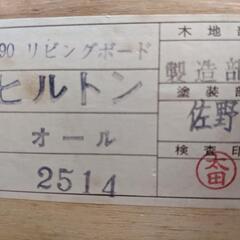 90 リビングボード
ヒルトン
オール
2514
木地部
製造部
塗装部
佐野
検査印
太田